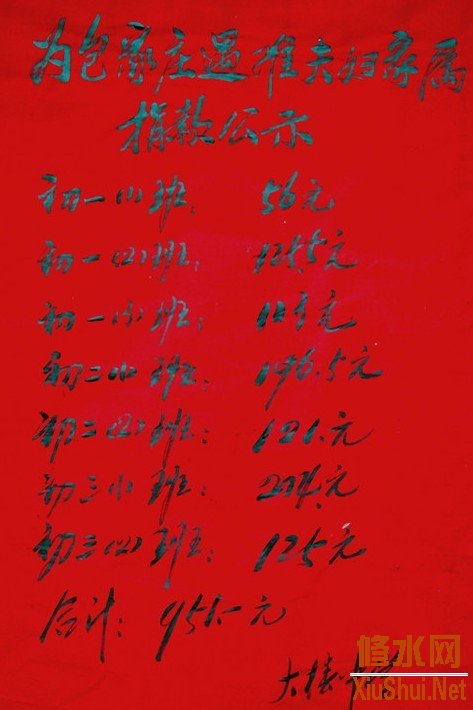 为包家庄遇难夫妇家属
捐款公示
初一(1)班: 56元
初一(2)班: 125.5元
初一(3)班: 113元
初二(1)班: 196.5元
初二(2)班: 121.元
初三(1)班: 214.元
初三(2)班: 125元
合计: 951.元
大椿
修水网
XiuShui.Net